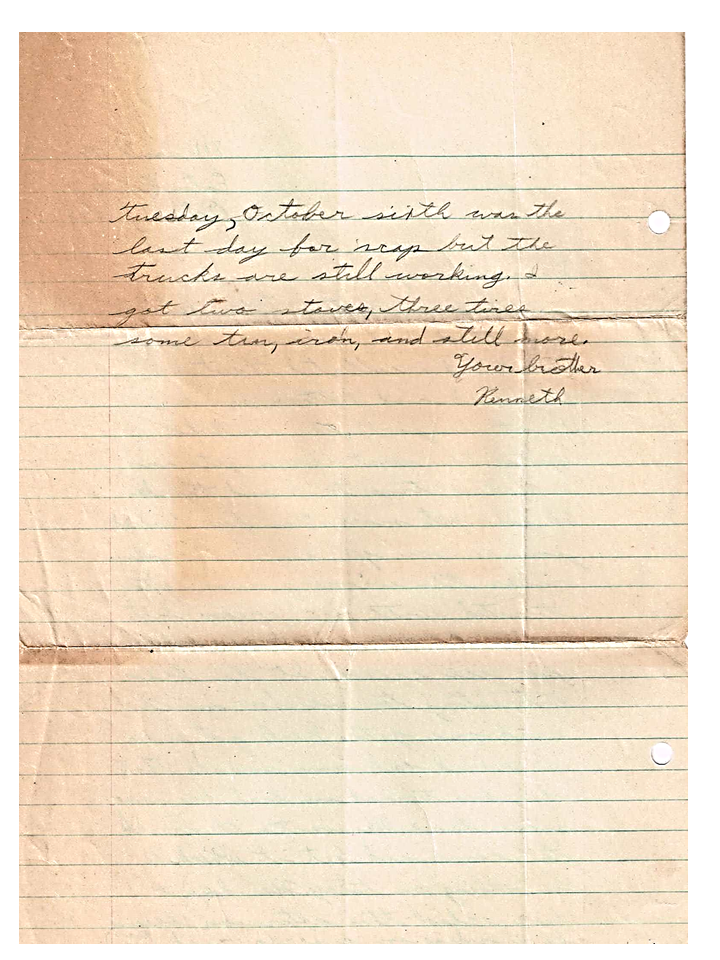 Tuesday, October sixth was the
last day for scrap but the
trucks are still working. I
got two stoves, three tires
some tin, iron, and still more.
Your brother
Kenneth